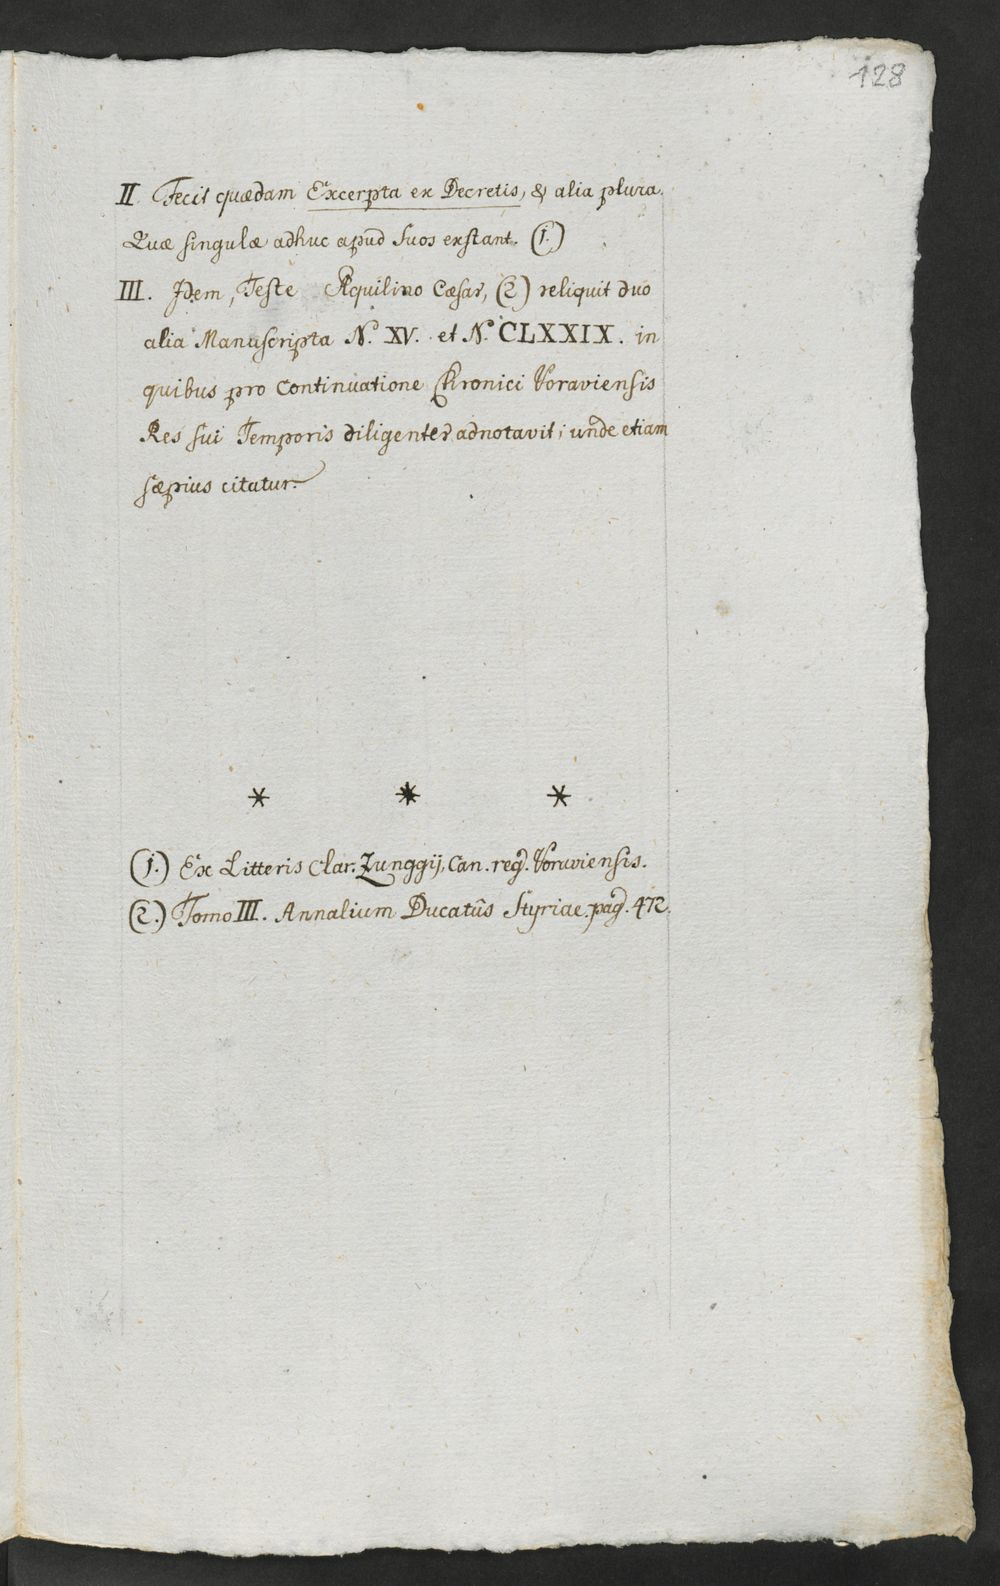 128
II. Fecit quædam Excerpta ex Decretis, & alia plura.
Quæ singulæ adhuc apud Suos exstant. (1.)
III. Idem, Teste Aquilino Cæsar, (2) reliquit duo
alia Manuscripta N.º XV. et N.º CLXXIX. in
quibus pro Continuatione Chronici Voraviensis
Res sui Temporis diligenter adnotavit; unde etiam
sæpius citatur.
* * *
(1.) Ex Litteris Clar. Zunggij, Can. reg. Voraviensis.
(2.) Tomo III. Annalium Ducatûs Styriae. pag. 472.